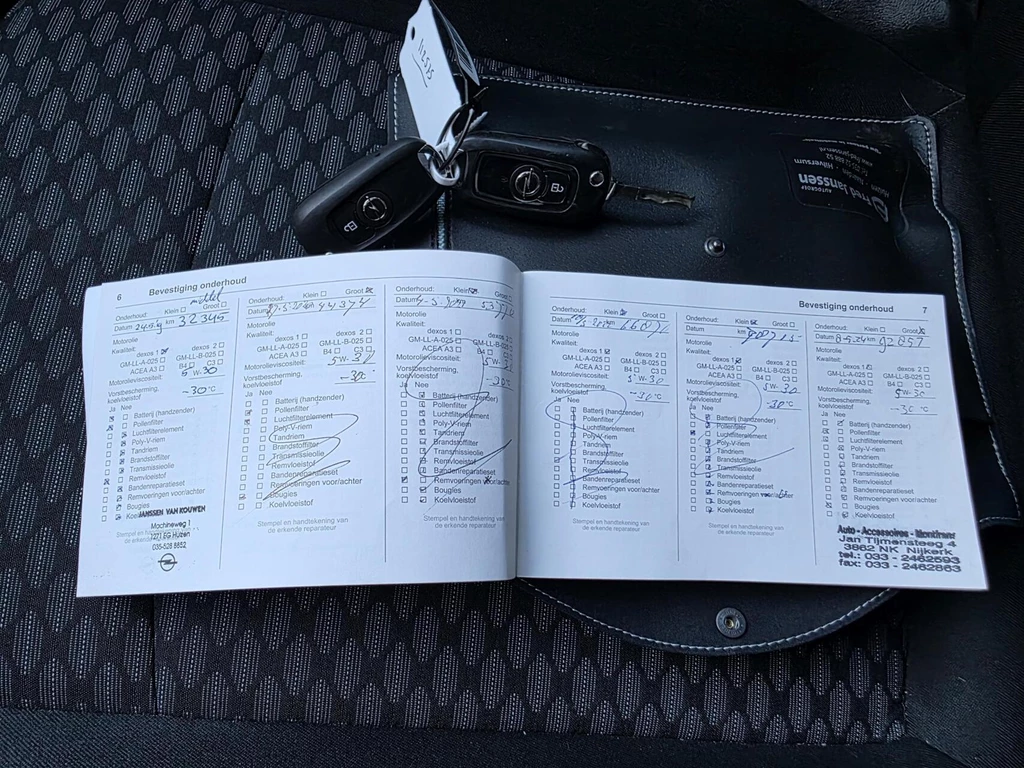 112525
AUTOGROEP
Fred Janssen
6
Bevestiging onderhoud
Onderhoud: Klein Groot
middel
Datum km 32345
Motorolie
Kwaliteit:
dexos 1 dexos 2
GM-LL-A-025 GM-LL-B-025
ACEA A3 B4 C3
Motorolieviscositeit: 5W-30
Vorstbescherming, koelvloeistof -30°C
Ja Nee
Batterij (handzender)
Pollenfilter
Luchtfilterelement
Poly-V-riem
Tandriem
Brandstoffilter
Transmissieolie
Remvloeistof
Bandenreparatieset
Remvoeringen voor/achter
Bougies
Koelvloeistof
JANSSEN VAN KOUWEN
Machineweg 1
1271 EG Huizen
035-528 8852
Onderhoud: Klein Groot
Datum km 44374
Motorolie
Kwaliteit:
dexos 1 dexos 2
GM-LL-A-025 GM-LL-B-025
ACEA A3 B4 C3
Motorolieviscositeit:
Vorstbescherming,
koelvloeistof
Ja Nee
Batterij (handzender)
Pollenfilter
Luchtfilterelement
Poly-V-riem
Tandriem
Brandstoffilter
Transmissieolie
Remvloeistof
Bandenreparatieset
Remvoeringen voor/achter
Bougies
Koelvloeistof
Stempel en handtekening van
de erkende reparateur
Onderhoud: Klein Groot
Datum
Motorolie
Kwaliteit:
dexos 1 dexos 2
GM-LL-A-025 GM-LL-B-025
ACEA A3 B4 C3
Motorolieviscositeit:
Vorstbescherming,
koelvloeistof -30°C
Ja Nee
Batterij (handzender)
Pollenfilter
Luchtfilterelement
Poly-V-riem
Tandriem
Brandstoffilter
Transmissieolie
Remvloeistof
Bandenreparatieset
Remvoeringen voor/achter
Bougies
Koelvloeistof
Stempel en handtekening van
de erkende reparateur
Bevestiging onderhoud
7
Onderhoud: Klein Groot
Datum
Motorolie
Kwaliteit:
dexos 1 dexos 2
GM-LL-A-025 GM-LL-B-025
ACEA A3 B4 C3
Motorolieviscositeit: 5W-30
Vorstbescherming,
koelvloeistof -30°C
Ja Nee
Batterij (handzender)
Pollenfilter
Luchtfilterelement
Poly-V-riem
Tandriem
Brandstoffilter
Transmissieolie
Remvloeistof
Bandenreparatieset
Remvoeringen voor/achter
Bougies
Koelvloeistof
Stempel en handtekening van
de erkende reparateur
Onderhoud: Klein Groot
Datum km
Motorolie
Kwaliteit:
dexos 1 dexos 2
GM-LL-A-025 GM-LL-B-025
ACEA A3 B4 C3
Motorolieviscositeit: 5W-30
Vorstbescherming,
koelvloeistof -30°C
Ja Nee
Batterij (handzender)
Pollenfilter
Luchtfilterelement
Poly-V-riem
Tandriem
Brandstoffilter
Transmissieolie
Remvloeistof
Bandenreparatieset
Remvoeringen voor/achter
Bougies
Koelvloeistof
Stempel en handtekening van
de erkende reparateur
Onderhoud: Klein Groot
Datum 8-5-24 km 92857
Motorolie
Kwaliteit:
dexos 1 dexos 2
GM-LL-A-025 GM-LL-B-025
ACEA A3 B4 C3
Motorolieviscositeit: 5W-30
Vorstbescherming,
koelvloeistof -30°C
Ja Nee
Batterij (handzender)
Pollenfilter
Luchtfilterelement
Poly-V-riem
Tandriem
Brandstoffilter
Transmissieolie
Remvloeistof
Bandenreparatieset
Remvoeringen voor/achter
Bougies
Koelvloeistof
Auto - Accessoires - Montfrans
Jan Tijmensteeg 4
3862 NK Nijkerk
tel.: 033 - 2462593
fax: 033 - 2462863